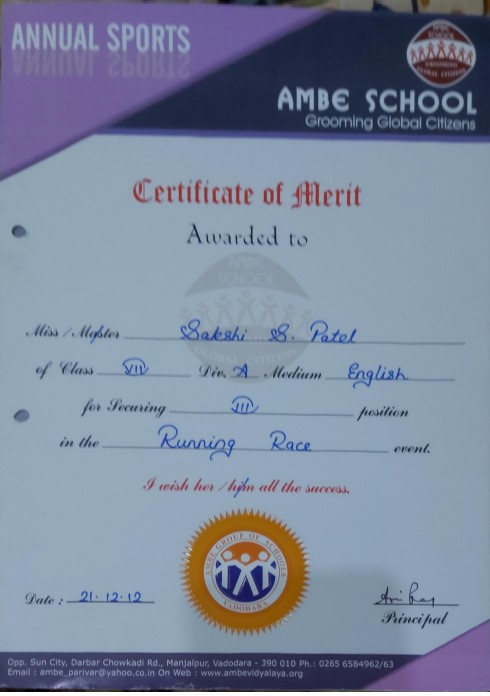 ANNUAL SPORTS
AMBE SCHOOL
GROOMING GLOBAL CITIZENS
AMBE SCHOOL
Grooming Global Citizens
Certificate of Merit
Awarded to
AMBE SCHOOL
GLOBAL CITIZENS
Miss / Master Sakshi S. Patel
of Class VII Div. A Medium English
for Securing III position
in the Running Race event.
I wish her / him all the success.
AMBE GROUP OF SCHOOLS
VADODARA
Date : 21.12.12
Principal
Opp. Sun City, Darbar Chowkadi Rd., Manjalpur, Vadodara - 390 010 Ph.: 0265 6584962/63
Email : ambe_parivar@yahoo.co.in On Web : www.ambevidyalaya.org